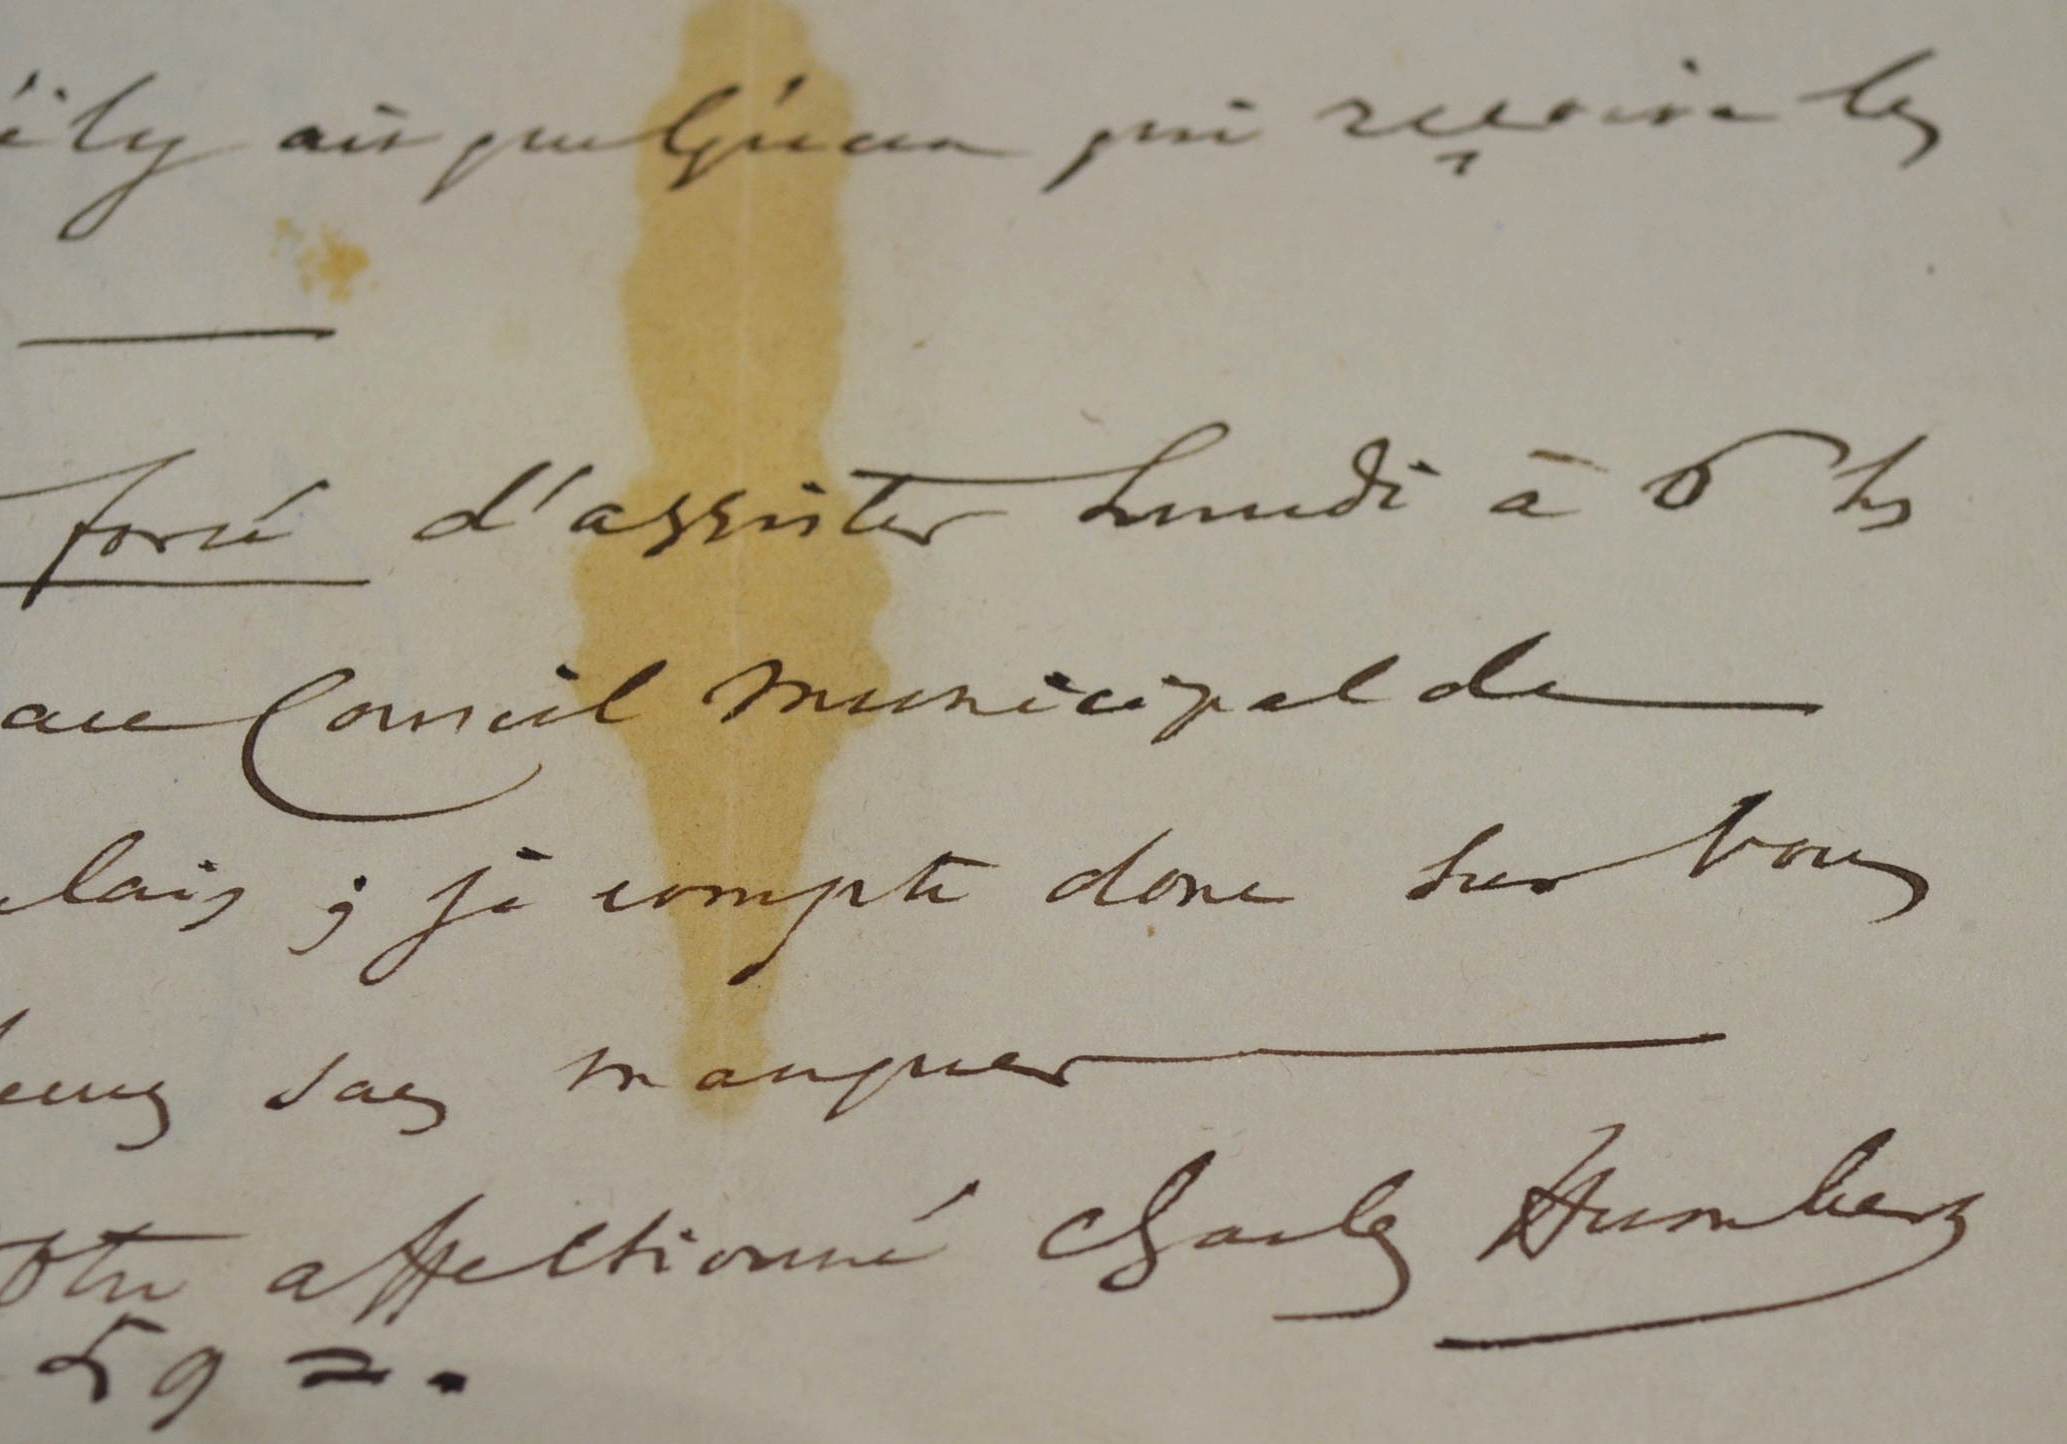 il y ait quelqu'un qui reçoive les
forcé d'assister Lundi à 6 hs
au Conseil Municipal de
je compte donc sur vous
sans manquer
affectionné Charles Humbert
592.